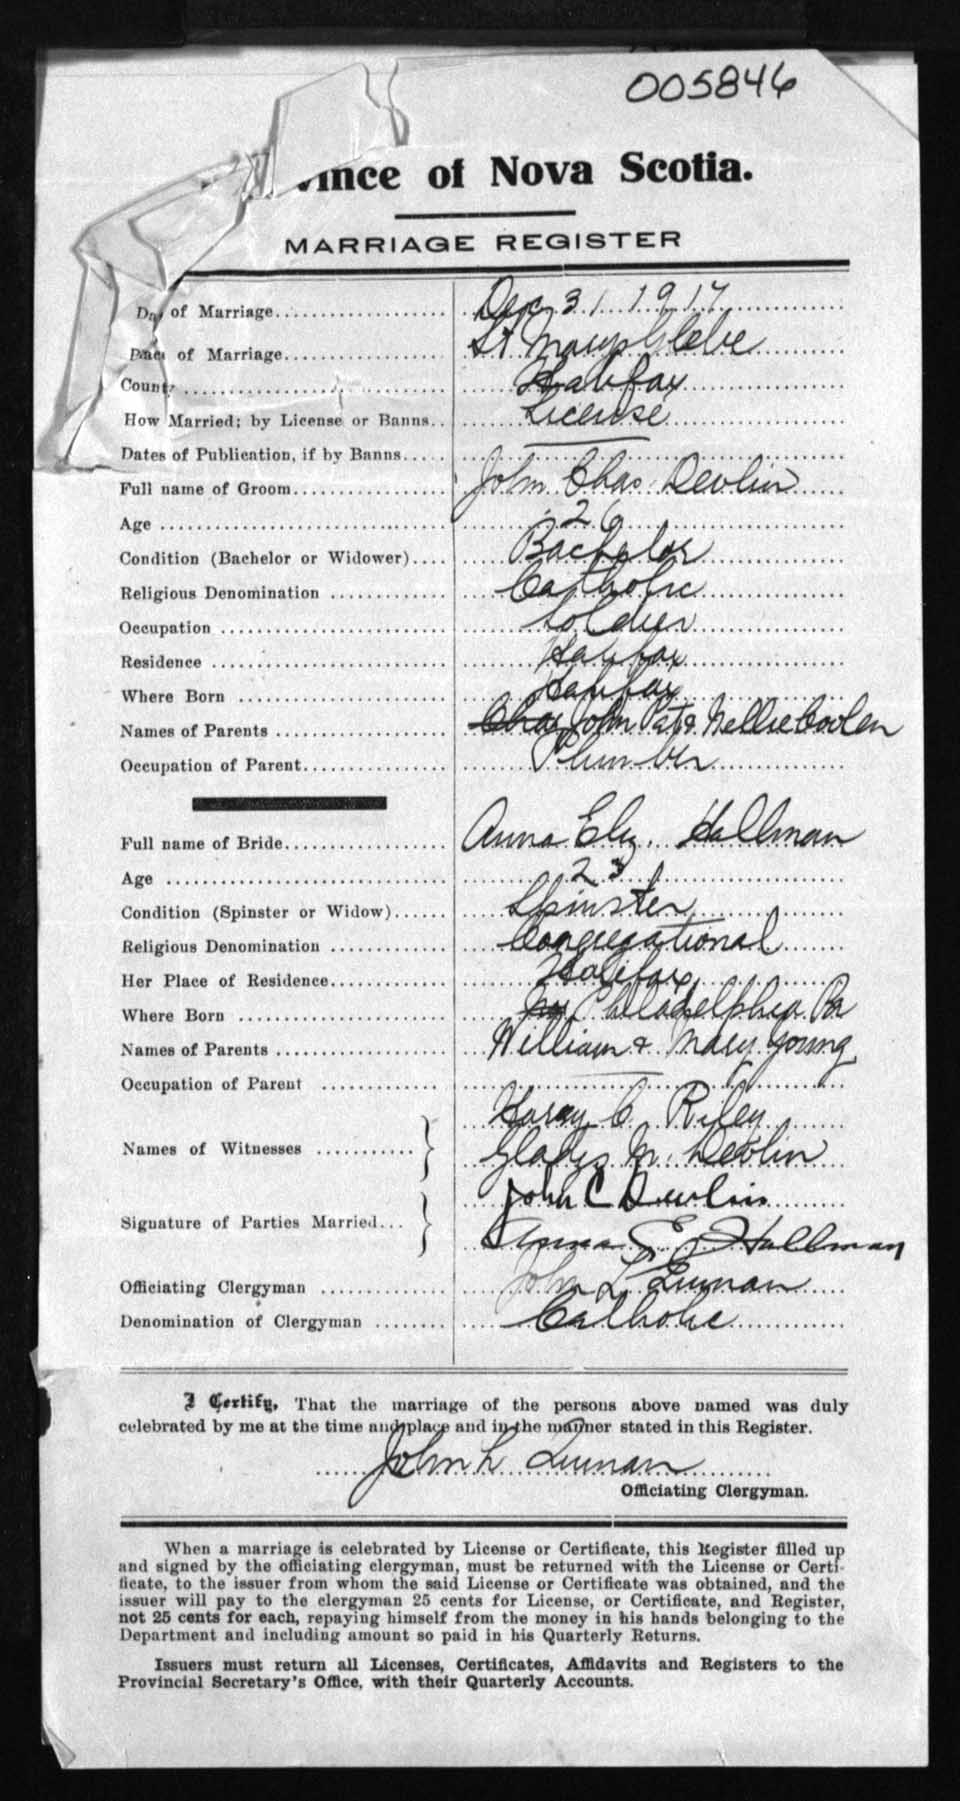 005846
vince of Nova Scotia.
MARRIAGE REGISTER
Day of Marriage Dec 31 1917
Place of Marriage St Marys Glebe
County Halifax
How Married; by License or Banns License
Dates of Publication, if by Banns
Full name of Groom John Chas Devlin
Age 26
Condition (Bachelor or Widower) Bachelor
Religious Denomination Catholic
Occupation Soldier
Residence Halifax
Where Born Halifax
Names of Parents Chas John Pat & Nellie Coolen
Occupation of Parent Plumber
Full name of Bride Anna Eliz. Hallman
Age 23
Condition (Spinster or Widow) Spinster
Religious Denomination Congregational
Her Place of Residence Halifax
Where Born Philladelphia Pa
Names of Parents William & Mary Young
Occupation of Parent
Names of Witnesses Harry C. Riley
Gladys M. Devlin
Signature of Parties Married John C Devlin
Anna E Hallman
Officiating Clergyman John L
Denomination of Clergyman Catholic
I Certify, That the marriage of the persons above named was duly
celebrated by me at the time and place and in the manner stated in this Register.
John L
Officiating Clergyman.
When a marriage is celebrated by License or Certificate, this Register filled up
and signed by the officiating clergyman, must be returned with the License or Certi-
ficate, to the issuer from whom the said License or Certificate was obtained, and the
issuer will pay to the clergyman 25 cents for License, or Certificate, and Register,
not 25 cents for each, repaying himself from the money in his hands belonging to the
Department and including amount so paid in his Quarterly Returns.
Issuers must return all Licenses, Certificates, Affidavits and Registers to the
Provincial Secretary's Office, with their Quarterly Accounts.